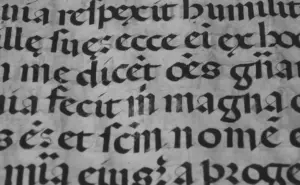 nia respexit humilit
illę suę: ecce ei ex hoc
n me dicēt oēs gn̄an
nia fecit m̄ magna q
s ē: et scm̄ nomē e
mīa eius: a proge